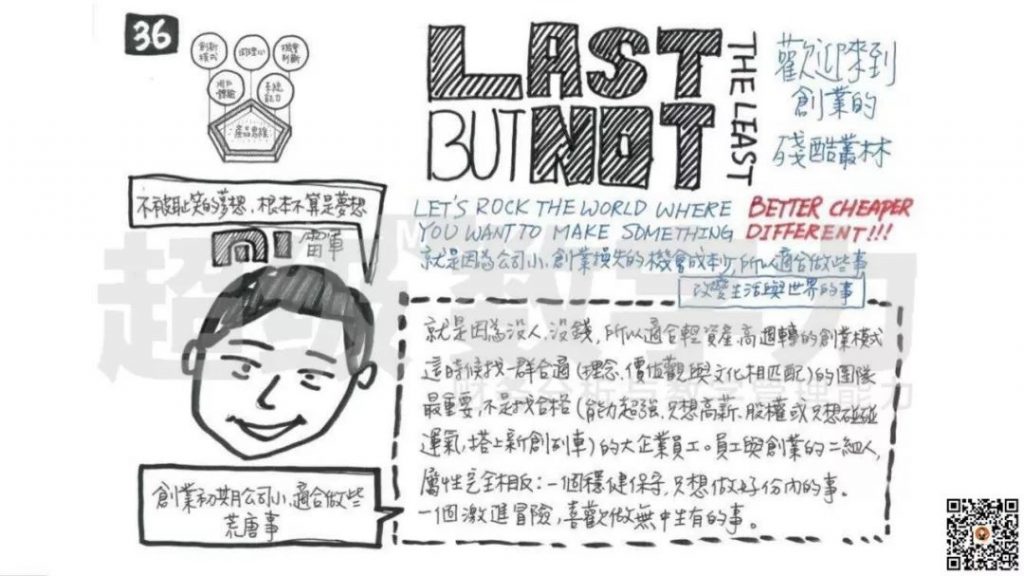 36
創新
模式
同理心
機會
判斷
用戶
體驗
系統
能力
產品思維
LAST
BUT NOT
THE LEAST
歡迎來到
創業的
殘酷叢林
不被恥笑的夢想,根本不算是夢想
雷軍
LET'S ROCK THE WORLD WHERE BETTER CHEAPER
YOU WANT TO MAKE SOMETHING DIFFERENT!!!
就是因為公司小,創業損失的機會成本少,所以適合做些事
改變生活與世界的事
就是因為沒人、沒錢,所以適合輕資產、高週轉的創業模式
這時候找一群合適(理念、價值觀與文化相匹配)的團隊
最重要,不是找合格(能力超強、只想高薪、股權或只想碰碰
運氣,搭上新創列車)的大企業員工。員工與創業的二組人,
屬性完全相反:一個穩健保守,只想做好份內的事。
一個激進冒險,喜歡做無中生有的事。
創業初期公司小,適合做些
荒唐事
超級數字力
財務分析與數字管理能力